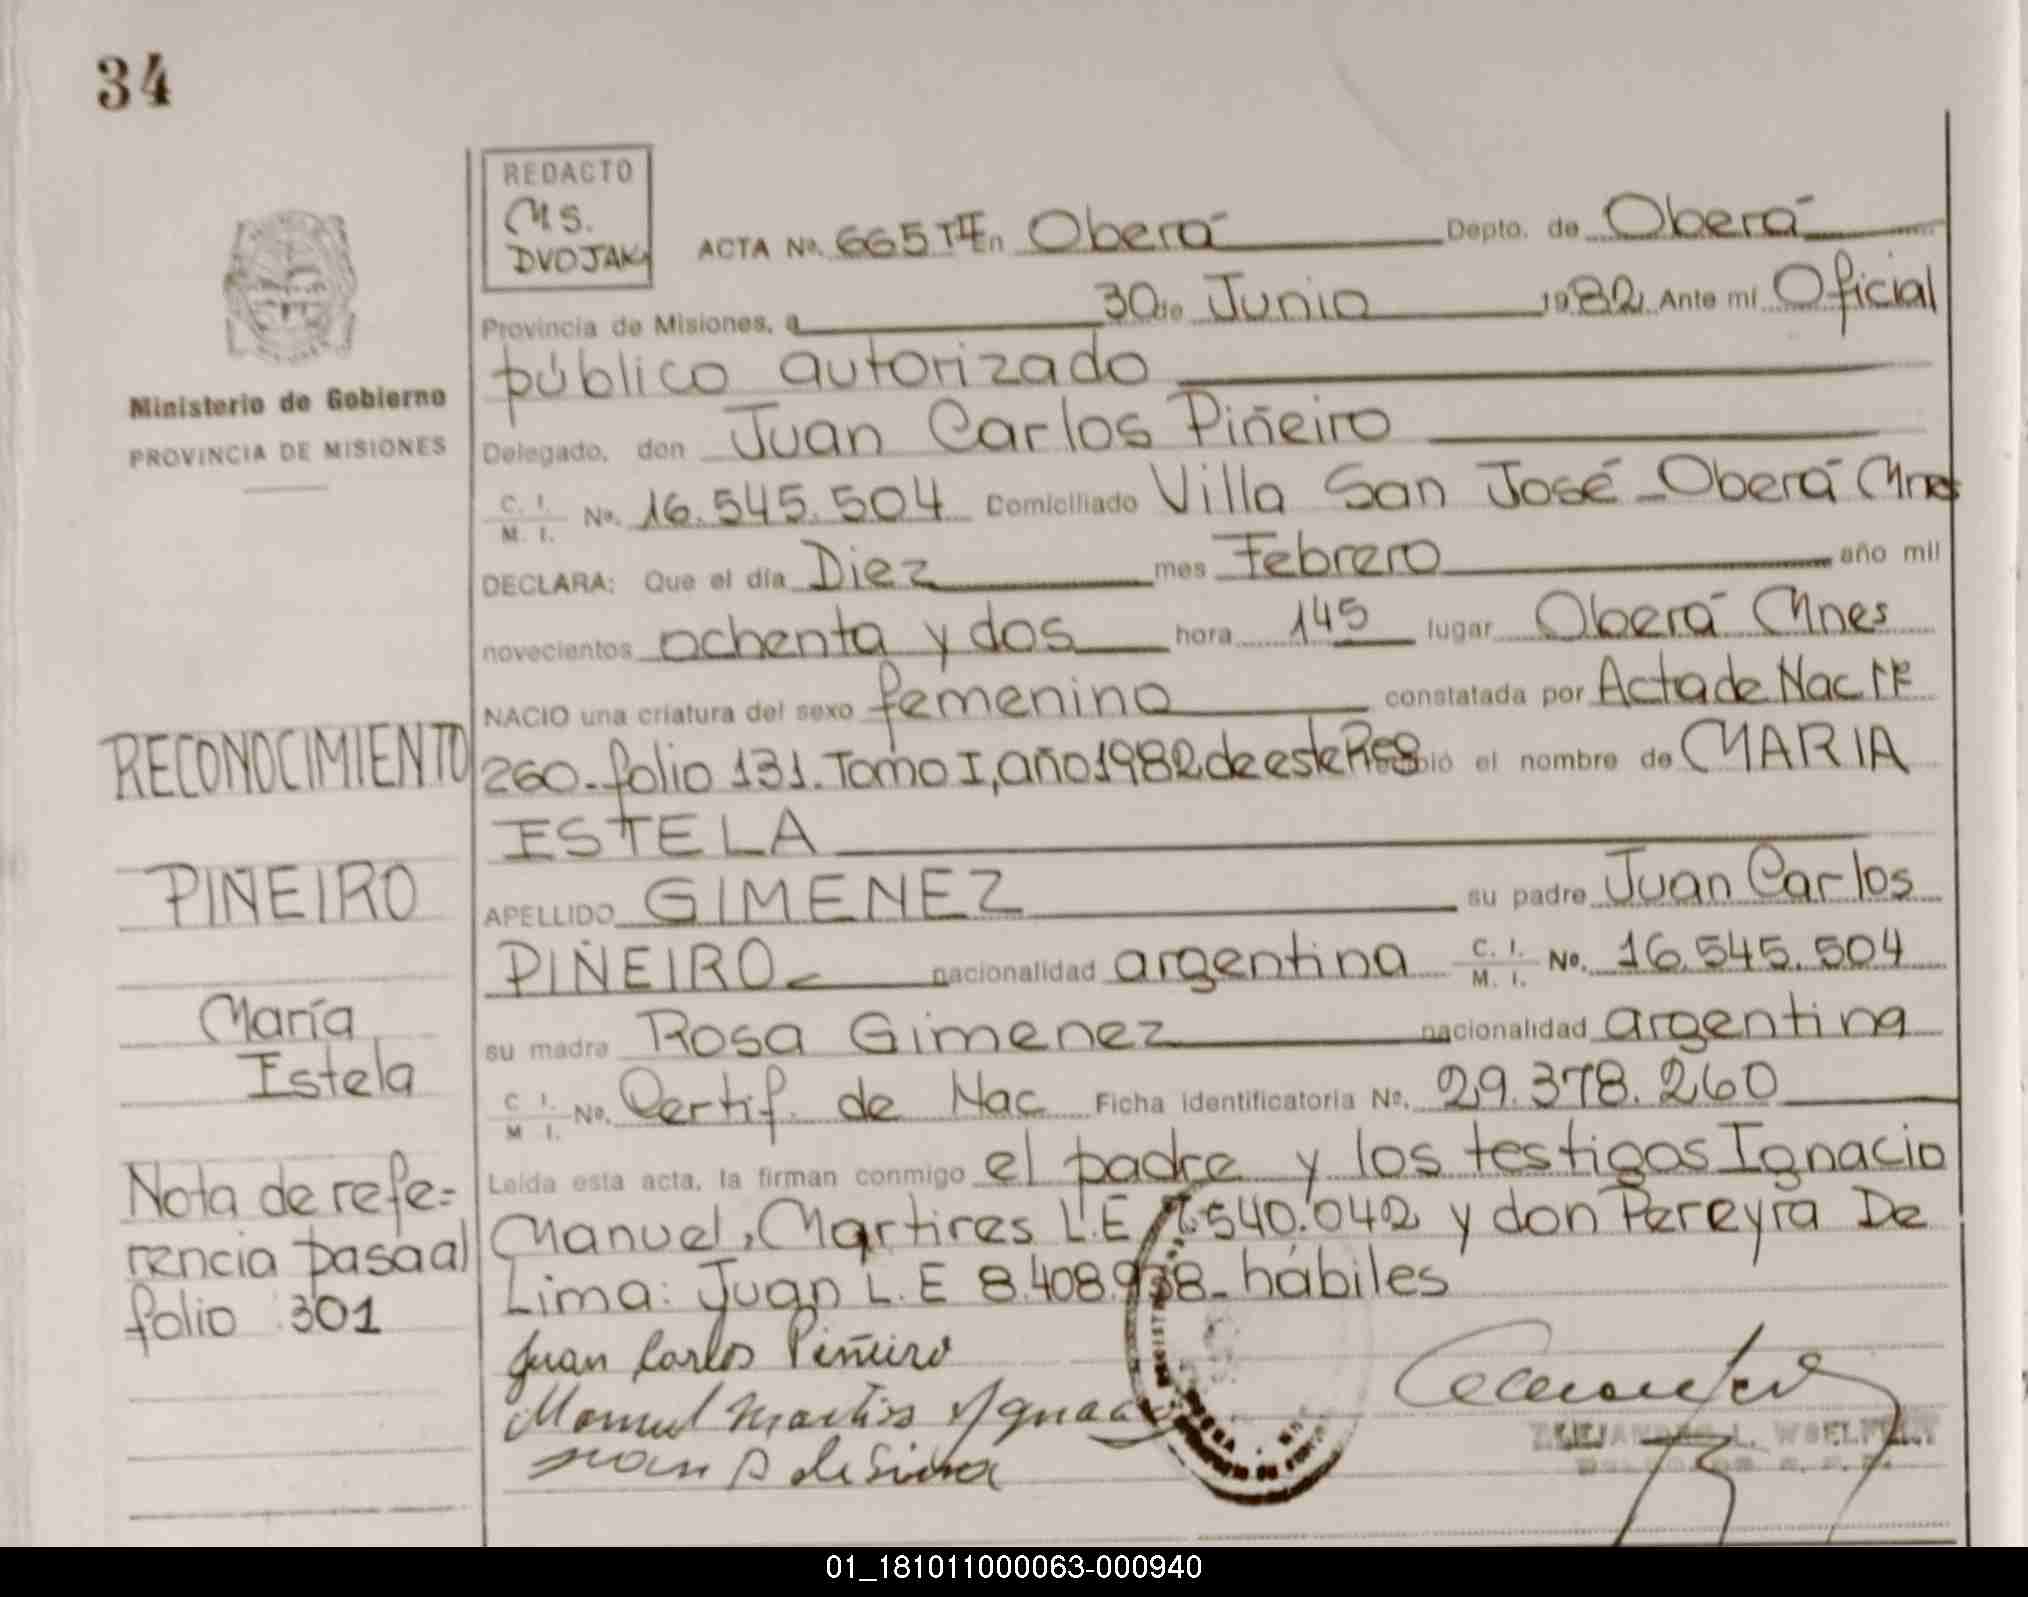 34
REDACTO
MS.
DVOJAK
ACTA No. 665 TII En Oberá Depto. de Oberá
Provincia de Misiones, a 30 de Junio 1982 Ante mí Oficial
público autorizado
Ministerio de Gobierno
PROVINCIA DE MISIONES
Delegado, don Juan Carlos Piñeiro
C. I. M. I. No. 16.545.504 Domiciliado Villa San José - Oberá Mnes
DECLARA: Que el día Diez mes Febrero año mil
novecientos ochenta y dos hora 145 lugar Oberá Mnes
NACIO una criatura del sexo femenino constatada por Acta de Nac
260 - folio 131. Tomo I, año 1982 de este Reg el nombre de MARIA
ESTELA
APELLIDO GIMENEZ su padre Juan Carlos
PIÑEIRO nacionalidad argentina C. I. M. I. No. 16.545.504
su madre Rosa Gimenez nacionalidad argentina
C. I. M. I. No. Certif. de Nac Ficha identificatoria No. 29.378.260
Leída esta acta, la firman conmigo el padre y los testigos Ignacio
Manuel, Martires L.E 540.042 y don Pereyra De
Lima: Juan L.E 8.408.938 - hábiles
RECONOCIMIENTO
PIÑEIRO
María
Estela
Nota de refe=
rencia pasa al
folio 301
Juan Carlos Piñeiro
Manuel Martires Ignacio
Juan P de Lima
ALEJANDRO L. WOELFERT
01_181011000063-000940